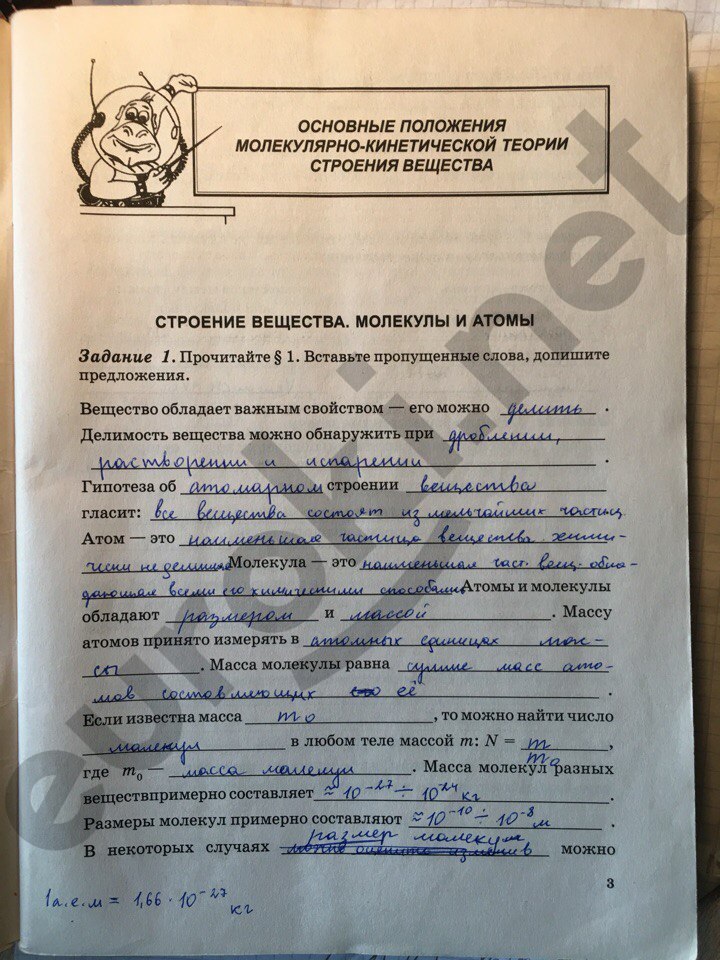 ОСНОВНЫЕ ПОЛОЖЕНИЯ
МОЛЕКУЛЯРНО-КИНЕТИЧЕСКОЙ ТЕОРИИ
СТРОЕНИЯ ВЕЩЕСТВА
СТРОЕНИЕ ВЕЩЕСТВА. МОЛЕКУЛЫ И АТОМЫ
Задание 1. Прочитайте § 1. Вставьте пропущенные слова, допишите
предложения.
Вещество обладает важным свойством — его можно делить .
Делимость вещества можно обнаружить при дроблении,
растворении и испарении .
Гипотеза об атомарном строении вещества
гласит: все вещества состоят из мельчайших частиц
Атом — это наименьшая частица вещества хими-
чески неделимая Молекула — это наименьшая част. вещ. обла-
дающая всеми его химическими способами Атомы и молекулы
обладают размером и массой . Массу
атомов принято измерять в атомных единицах мас-
сы . Масса молекулы равна сумме масс ато-
мов составляющих её .
Если известна масса m₀ , то можно найти число
молекул в любом теле массой m: N = m/m₀ ,
где m₀ — масса молекул . Масса молекул разных
веществпримерно составляет ≈ 10⁻²⁷ ÷ 10⁻²⁴ кг .
Размеры молекул примерно составляют ≈ 10⁻¹⁰ ÷ 10⁻⁸ м .
размер молекул
В некоторых случаях можно
3
1а.е.м = 1,66 · 10⁻²⁷ кг
euroki.net